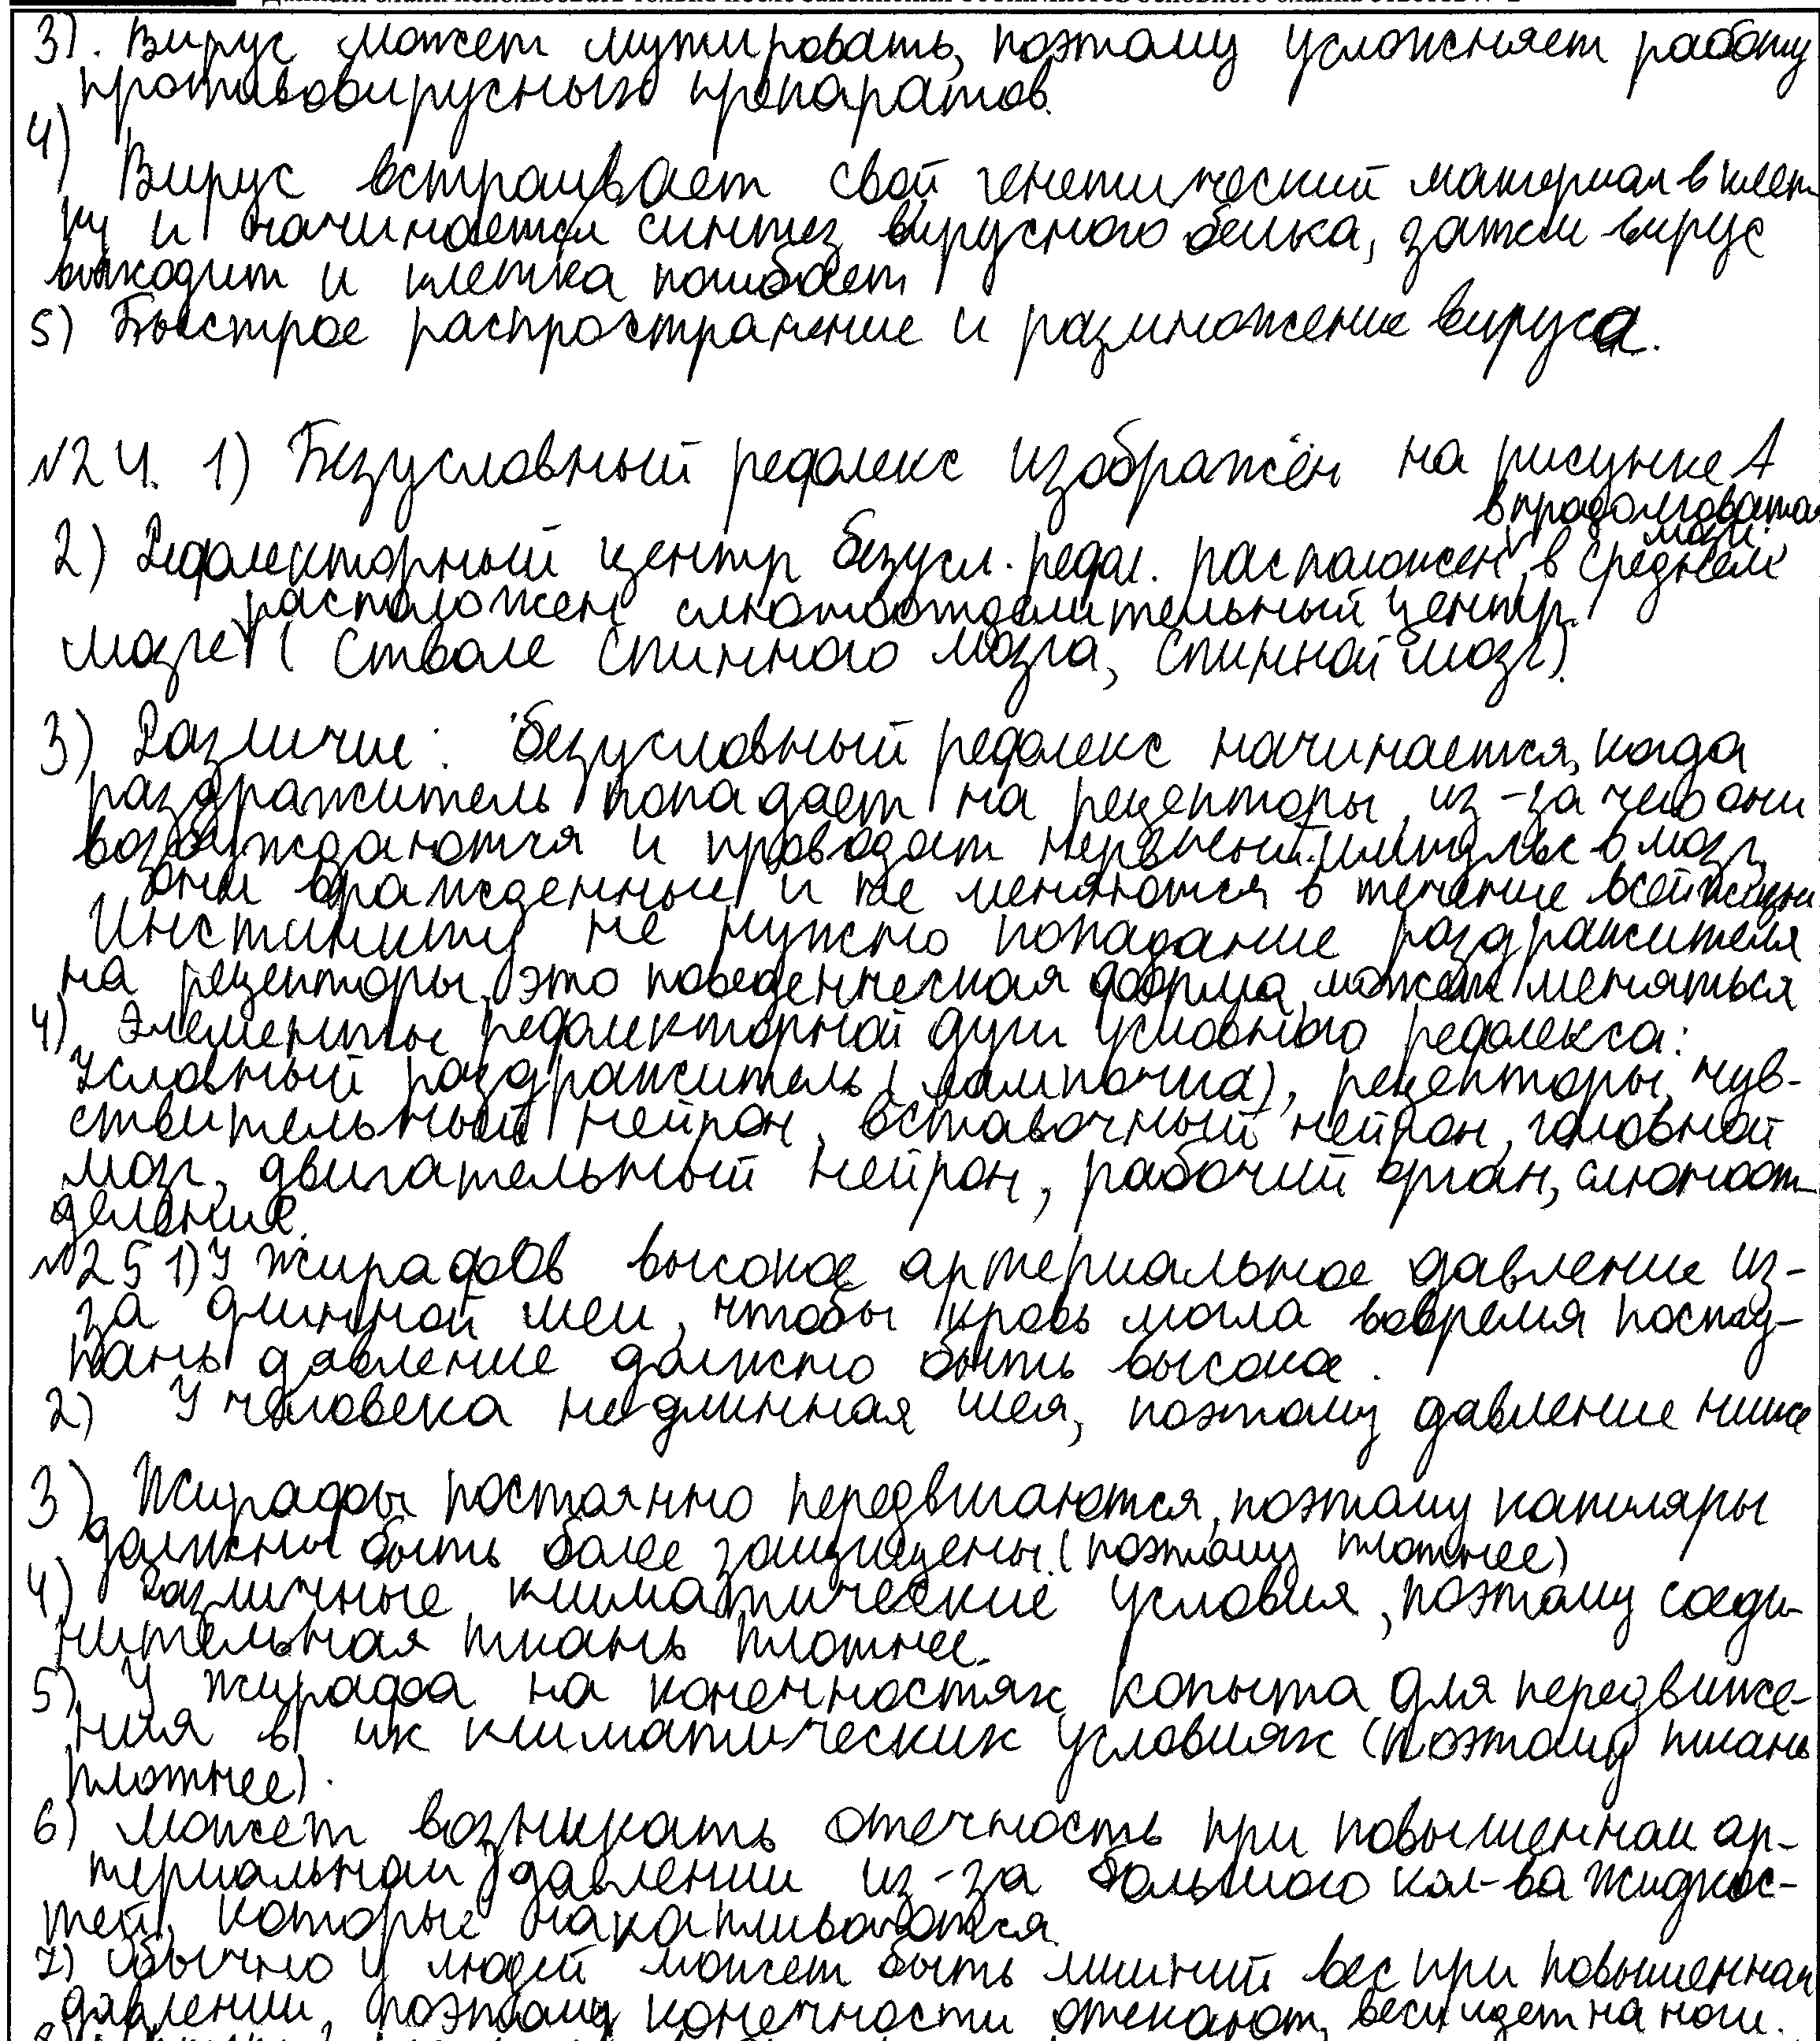 3). Вирус может мутировать, поэтому усложняет работу
противовирусных препаратов.
4)
Вирус встраивает свой генетический материал в клет
ку и начинается синтез вирусного белка, затем вирус
выходит и клетка погибает
5) Быстрое распространение и размножение вируса.
№24. 1) Безусловный рефлекс изображён на рисунке А
в продолговатом
мозге.
2) Рефлекторный центр безусл. рефл. расположен, в среднем
расположен слюноотделительный центр.
мозге (стволе спинного мозга, спинной мозг).
3) Различие: безусловный рефлекс начинается, когда
раздражитель попадает на рецепторы, из-за чего они
возбуждаются и проводят нервный импульс в мозг,
они врожденные и не меняются в течение всей жизни
Инстинкту не нужно попадание раздражителя
на рецепторы, это поведенческая форма, может меняться
4) Элементы рефлекторной дуги условного рефлекса:
Условный раздражитель (лампочка), рецепторы, чув-
ствительный нейрон, вставочный нейрон, головной
мозг, двигательный нейрон, рабочий орган, слюноот-
деление.
№25 1) У жирафов высокое артериальное давление из-
за длинной шеи, чтобы кровь могла вовремя посту-
пать давление должно быть высокое.
2) У человека не длинная шея, поэтому давление ниже
3) Жирафы постоянно передвигаются, поэтому капиляры
должны быть более защищены. (поэтому плотнее)
4) Различные климатические условия, поэтому соеди-
нительная ткань плотнее.
5) У жирафа на конечностях копыта для передвиже-
ния в их климатических условиях (поэтому ткань
плотнее).
6) Может возникать отечность при повышенном ар-
териальном давлении из-за большого кол-ва жидкос-
тей, которые накапливаются.
7) Обычно у людей может быть лишний вес при повышенном
давлении, поэтому конечности отекают, весь идет на ноги.